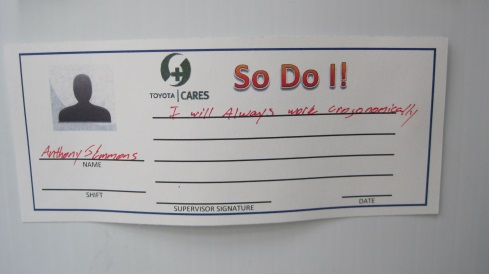 So Do I!
TOYOTA | CARES
I will Always work ergonomically
Anthony Simmons
NAME
SHIFT
SUPERVISOR SIGNATURE
DATE